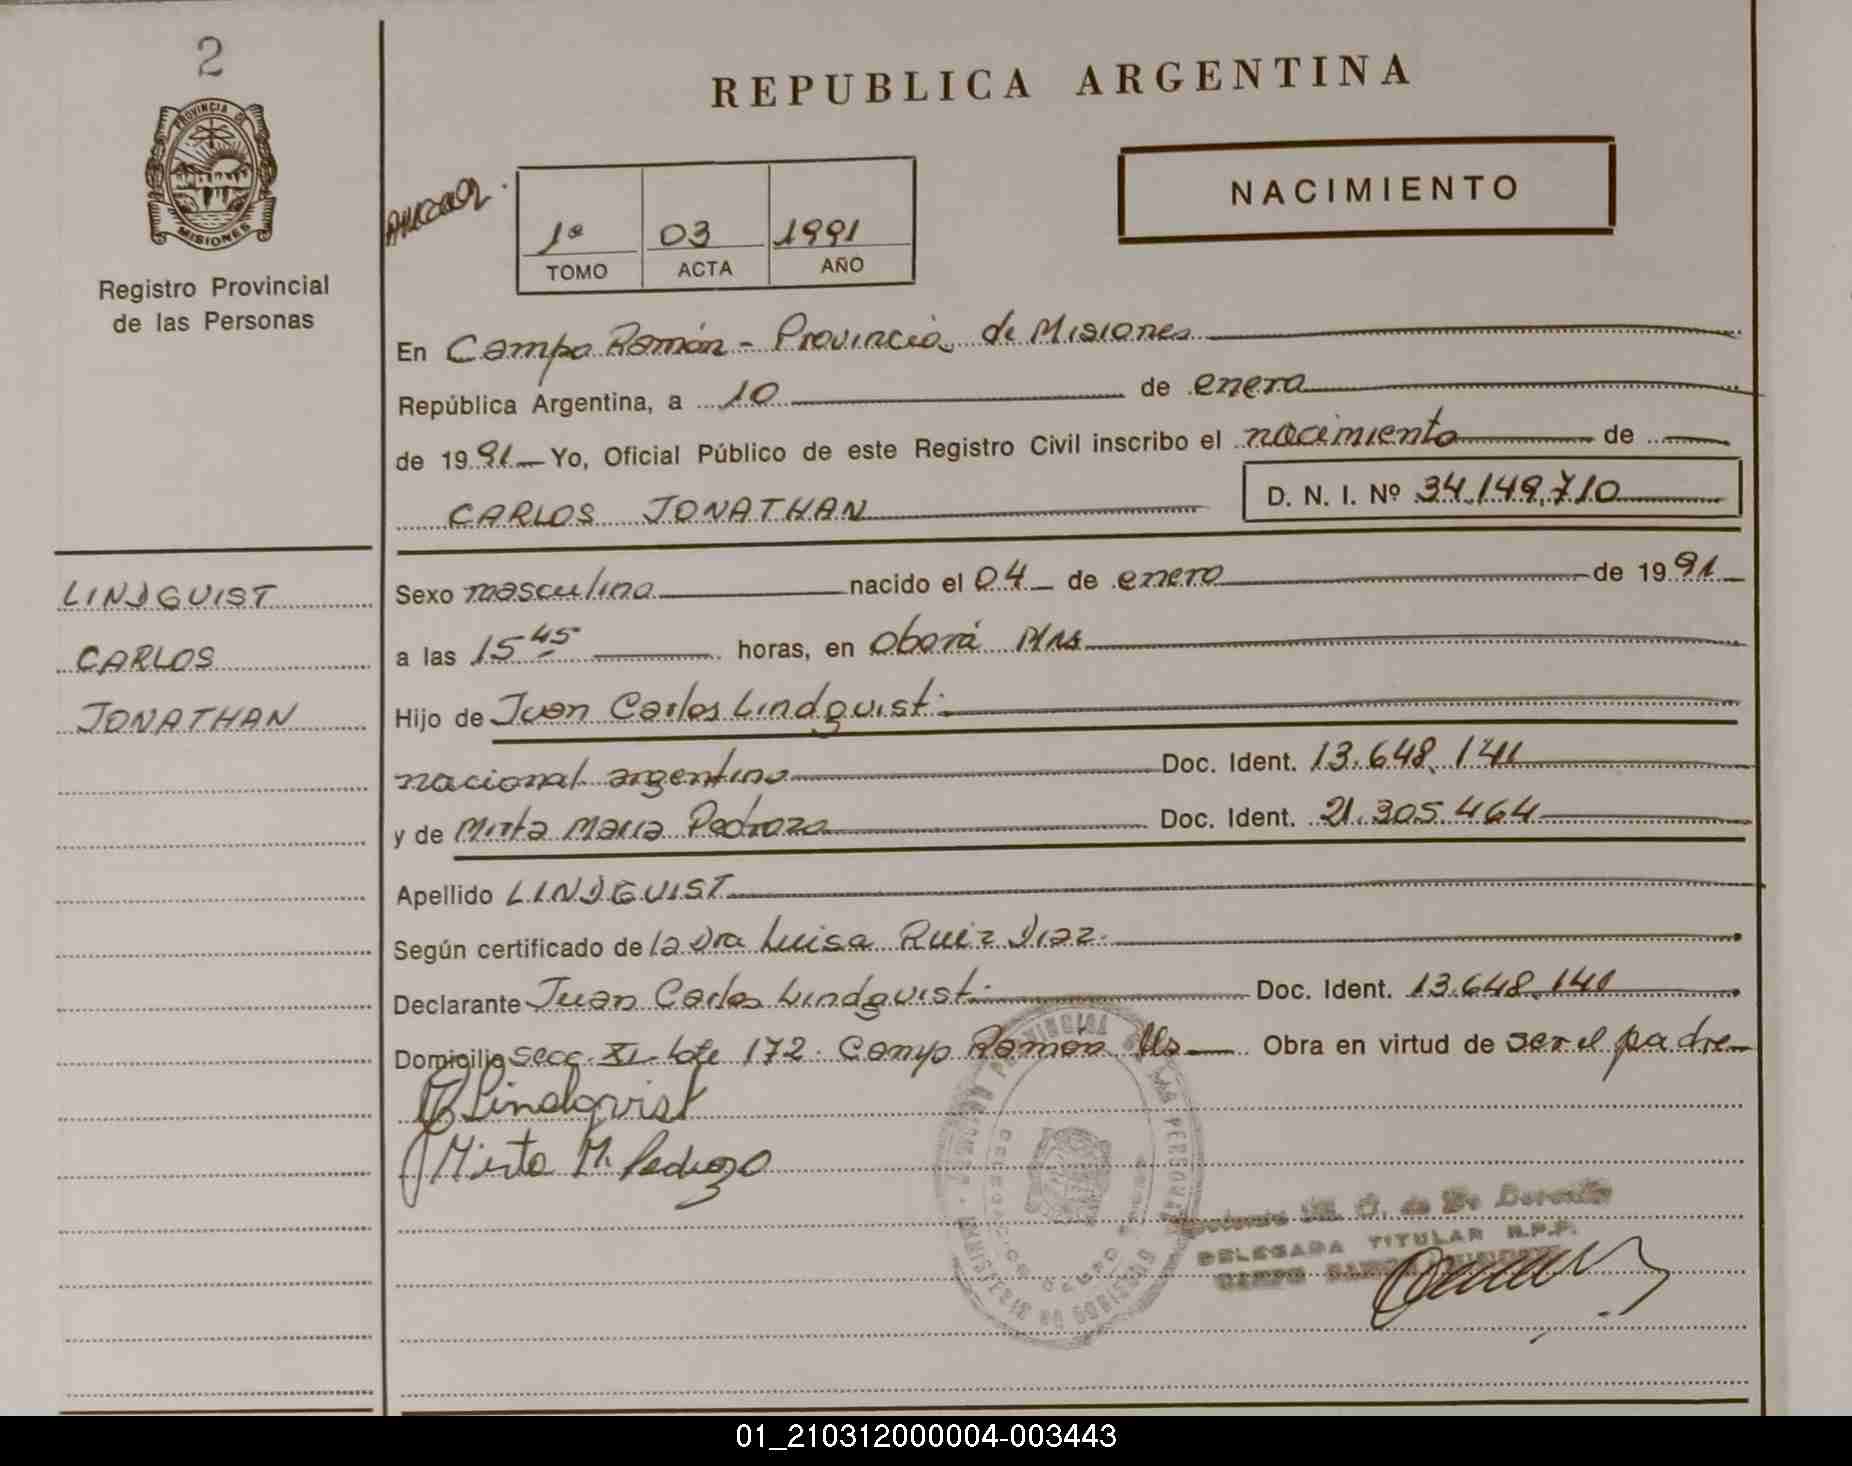 2
PROVINCIA DE
MISIONES
Registro Provincial
de las Personas
LINDQUIST
CARLOS
JONATHAN
REPUBLICA ARGENTINA
1º 03 1991
TOMO ACTA AÑO
NACIMIENTO
En Campo Ramón - Provincia de Misiones
República Argentina, a 10 de enero
de 1991 Yo, Oficial Público de este Registro Civil inscribo el nacimiento de
CARLOS JONATHAN D. N. I. Nº 34.149.710
Sexo masculino nacido el 04 de enero de 1991
a las 15 45 horas, en Oberá Mns
Hijo de Juan Carlos Lindquist
nacional. argentino Doc. Ident. 13.648.141
y de Mirta Maria Pedrozo Doc. Ident. 21.305.464
Apellido LINDQUIST
Según certificado de la Dra Luisa Ruiz Diaz
Declarante Juan Carlos Lindquist Doc. Ident. 13.648.141
Domicilio Secc. XI- lote 172. Campo Ramón Mns Obra en virtud de ser el padre
Lindqvist
Mirta M. Pedrozo
DELEGADA TITULAR R.P.P.
CAMPO RAMON
01_210312000004-003443